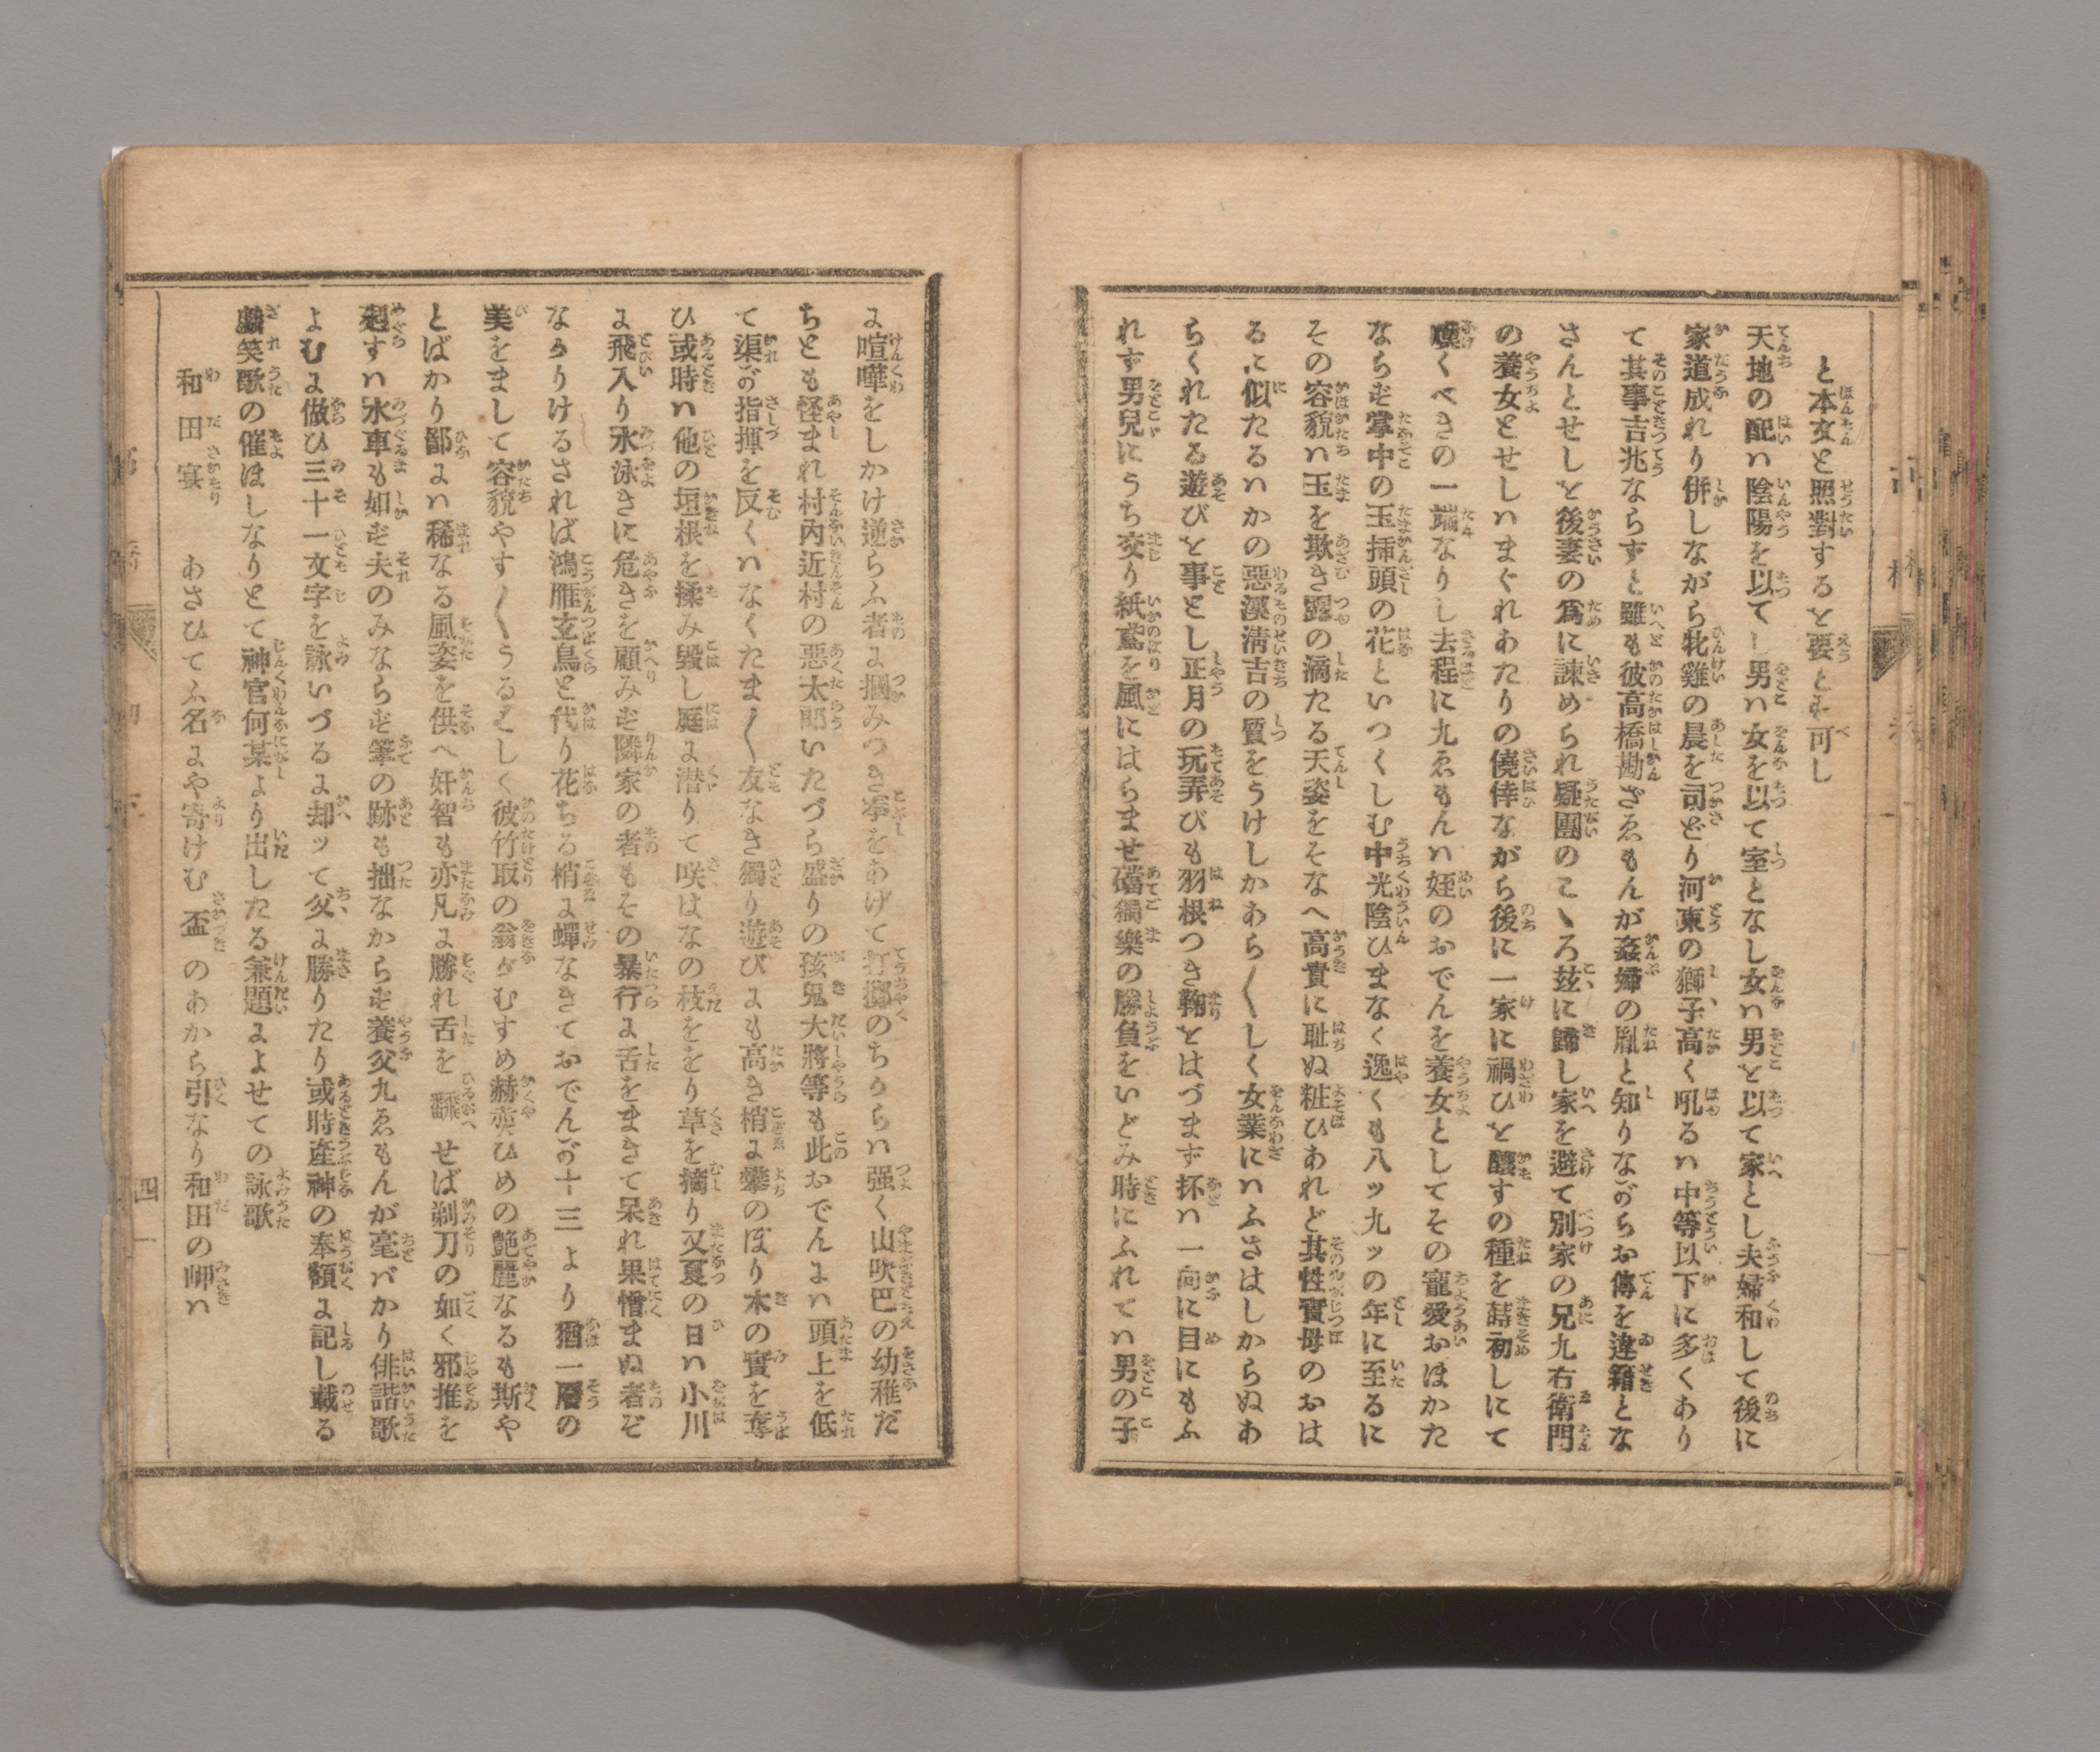 と本文と照對するを要とす可し
天地の配ハ陰陽を以てし男ハ女を以て室となし女ハ男を以て家とし夫婦和して後に
家道成れり併しながら牝雞の晨を司どり河東の獅子高く吼るハ中等以下に多くあり
て其事吉兆ならずと雖も彼高橋勘ざゑもんが姦婦の胤と知りながらお傳を違籍とな
さんとせしを後妻の爲に諫められ疑團のこゝろ玆に歸し家を避て別家の兄九右衛門
の養女とせしハまぐれあたりの僥倖ながら後に一家に禍ひを釀すの種を蒔初しにて
嘆くべきの一端なりし去程に九ゑもんハ姪のおでんを養女としてその寵愛おほかた
ならず掌中の玉挿頭の花といつくしむ中光陰ひまなく逸くも八ッ九ッの年に至るに
その容貌ハ玉を欺き露の滴たる天姿をそなへ高貴に耻ぬ粧ひあれど其性實母のおは
るに似たるハかの惡漢淸吉の質をうけしかあら〱しく女業にハふさはしからぬあ
らくれたる遊びを事とし正月の玩弄びも羽根つき鞠をはづまず抔ハ一向に目にもふ
れず男兒にうち交り紙鳶を風にはらませ礑獨樂の勝負をいどみ時にふれてハ男の子
に喧嘩をしかけ逆らふ者に摑みつき拳をあげて打擲のちからハ强く山吹巴の幼稚だ
ちとも怪まれ村內近村の惡太郎いたづら盛りの孩兒大將等も此おでんにハ頭上を低
て渠が指揮を反くハなくたま〱友なき獨り遊びにも高き梢に攀のぼり木の實を奪
ひ或時ハ他の垣根を揉み毀し庭に潜りて咲はなの枝ををり草を摘り又夏の日ハ小川
に飛入り水泳きに危きを顧みず隣家の者もその暴行に舌をまきて呆れ果憎まぬ者ぞ
なかりけるされば鴻雁玄鳥と代り花ちる梢に蟬なきておでんが十三より猶一層の
美をまして容貌やす〱うるはしく彼竹取の翁がむすめ赫奕ひめの艶麗なるも斯や
とばかり鄙にハ稀なる風姿を供へ奸智も亦凡に勝れ舌を飜へせば剃刀の如く邪推を
廻すハ水車も如ず夫のみならず筆の跡も拙なからず養父九ゑもんが毫バかり俳諧歌
よむに倣ひ三十一文字を詠いづるに却ッて父に勝りたり或時產神の奉額に記し載る
戯笑歌の催ほしなりとて神官何某より出したる兼題によせての詠歌
和田宴　あさひてふ名にや寄けむ盃のあから引なり和田の岬ハ
四